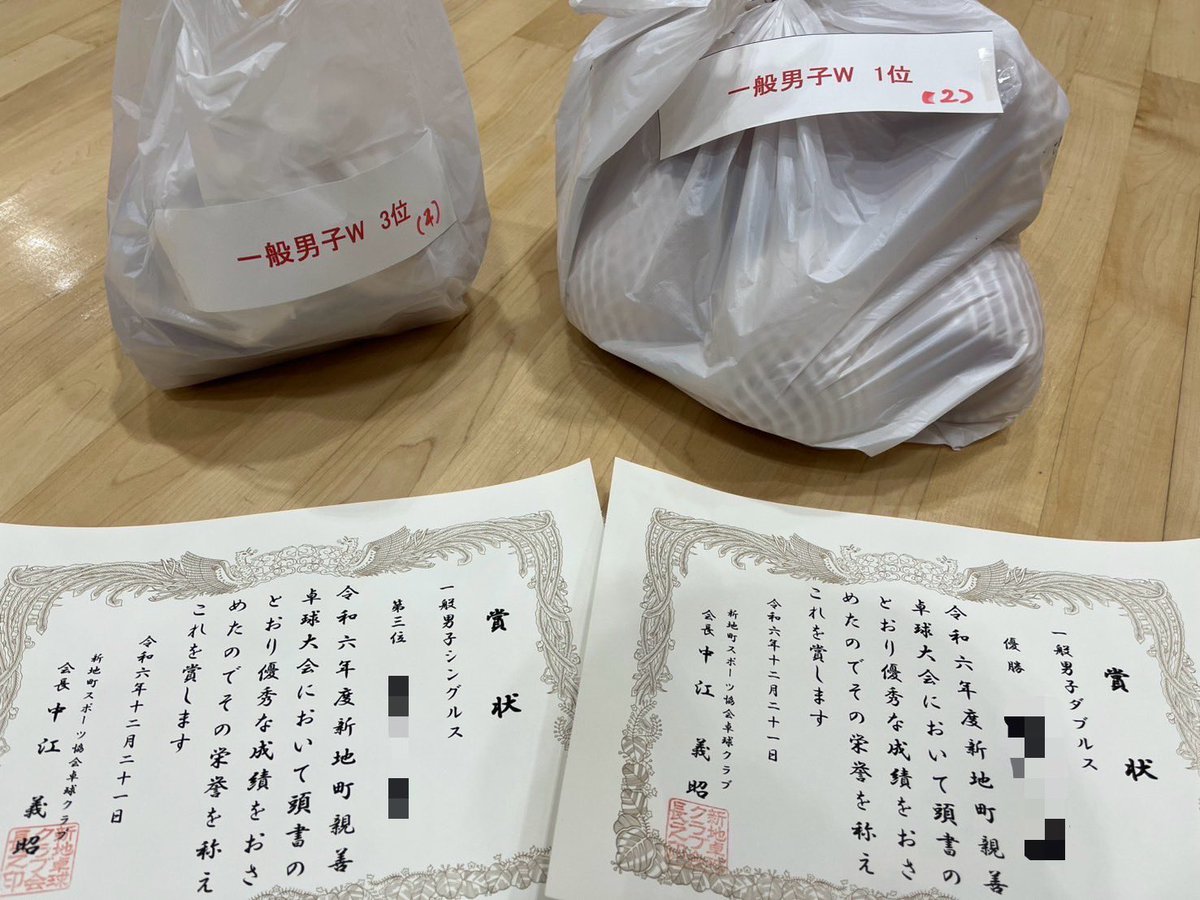 一般男子W 3位
(4)
一般男子W 1位
(2)
賞状
一般男子シングルス
第三位
令和六年度新地町親善
卓球大会において頭書の
とおり優秀な成績をおさ
めたのでその栄誉を称え
これを賞します
令和六年十二月二十一日
新地町スポーツ協会卓球クラブ
会長 中江義昭
賞状
一般男子ダブルス
優勝
令和六年度新地町親善
卓球大会において頭書の
とおり優秀な成績をおさ
めたのでその栄誉を称え
これを賞します
令和六年十二月二十一日
新地町スポーツ協会卓球クラブ
会長 中江義昭